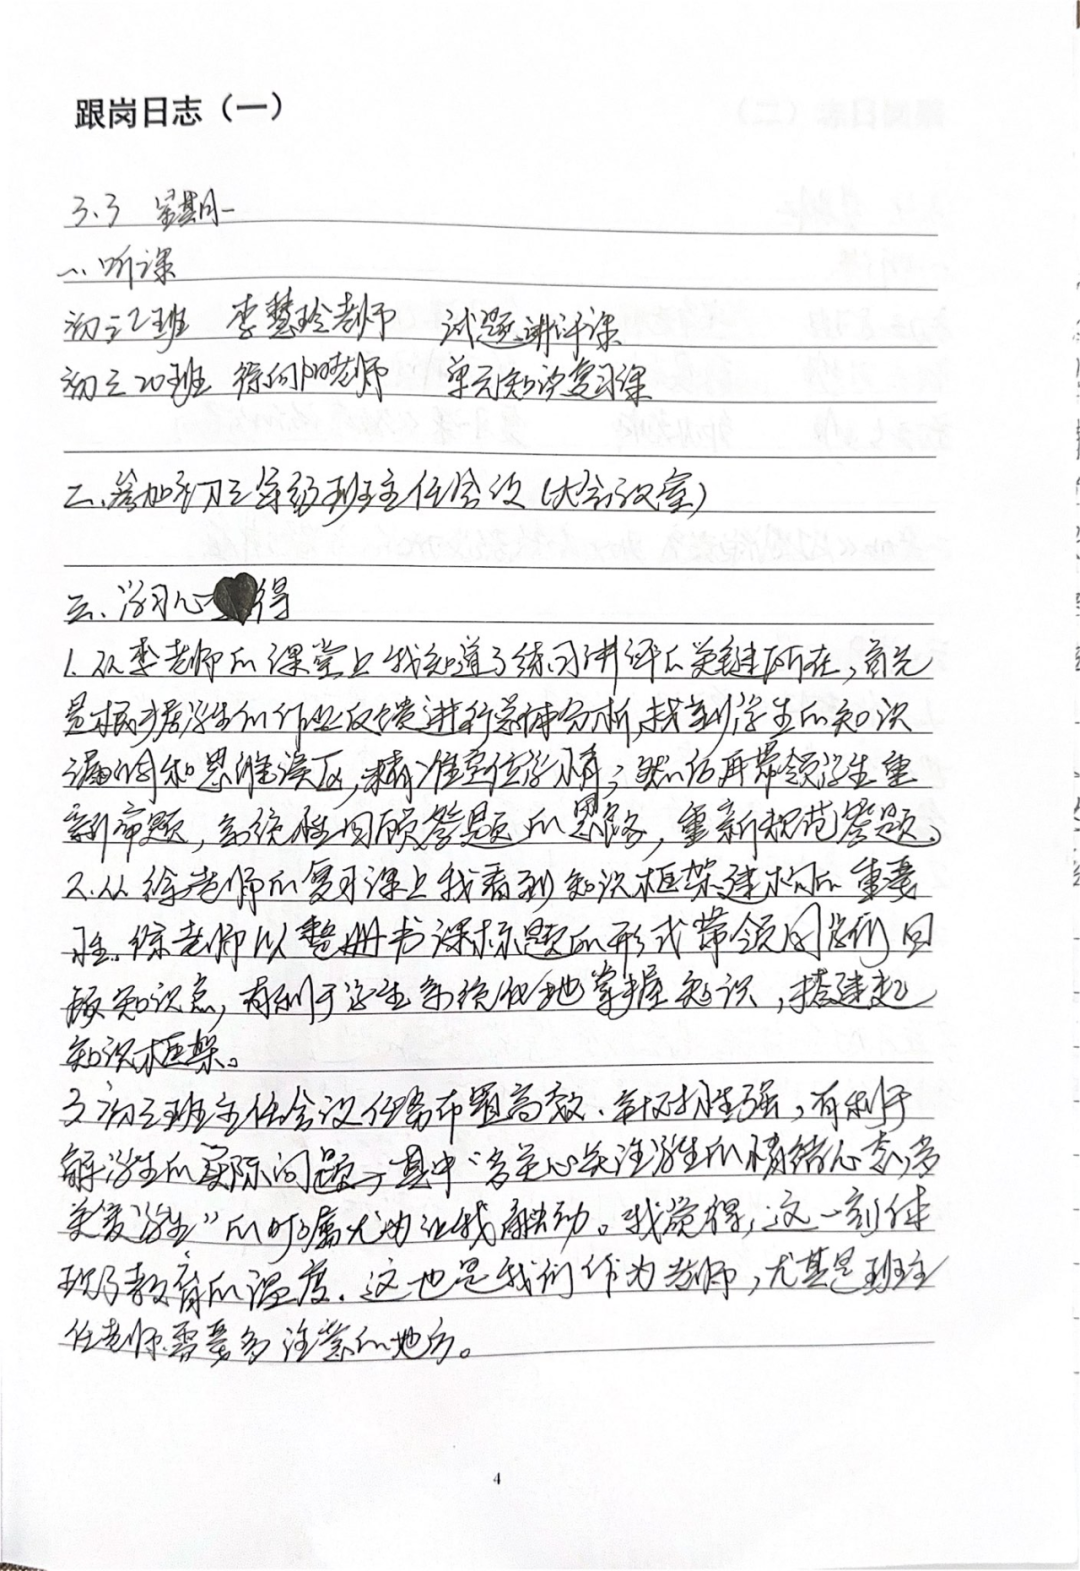 跟岗日志（一）
3.3 星期一
一、听课
初三2班 李慧玲老师 试题讲评课
初三20班 徐向阳老师 单元知识复习课
二、参加初三年级班主任会议（大会议室）
三、学习心得
1.从李老师的课堂上我知道了练习讲评的关键所在，首先
是根据学生的作业反馈进行具体分析，找到学生的知识
漏洞和思维误区，精准定位学情；然后再带领学生重
新审题，系统性回顾答题的思路，重新规范答题。
2.从徐老师的复习课上我看到知识框架建构的重要
性。徐老师以整册书课标题的形式带领同学们回
顾知识点，有利于学生系统化地掌握知识，搭建起
知识框架。
3.初三班主任会议任务布置高效、针对性强，有利于
解学生的实际问题，其中“多关心关注学生的情绪心态，多
关爱学生”的叮嘱尤为让我触动。我觉得，这一刻体
现了教育的温度。这也是我们作为老师，尤其是班主
任老师需要多注意的地方。
4